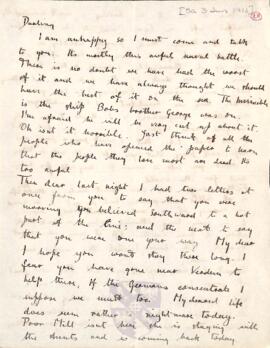 [Sa 3 June 1916]
Darling
I am unhappy so I must come and talk
to you. Its mostly this awful naval battle.
There is no doubt we have had the worst
of it and we have always thought we should
have the best of it on the sea. The Invincible
is the ship Bobs brother George was on.
I'm afraid he will be very cut up about it.
Oh isn't it horrible. Just think of all the
people who have opened the paper to learn
that the people they love most are dead. Its
too awful.
Then dear last night I had two letters at
once from you to say that you were
moving you believed southward to a hot
part of the line: and the next to say
that you were on your way. My dear
I hope you wont stay there long. I
fear you have gone near Verdun to
help there. If the Germans concentrate I
suppose we must too. My dearest life
does seem rather nightmare today.
Poor Mill isnt here she is staying with
the aunts and is coming back today